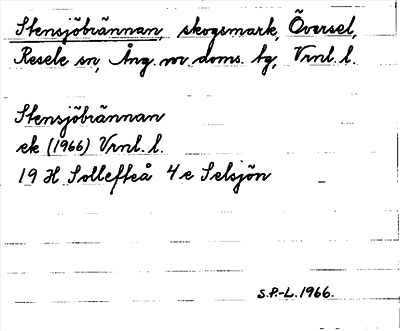 Stensjöbrännan, skogsmark, Översel,
Resele sn, Ång. nv. doms. bg, Vrnl. l.
Stensjöbrännan
ek (1966) Vrnl. l.
19 H Sollefteå 4 e Selsjön
S.P.-L. 1966.